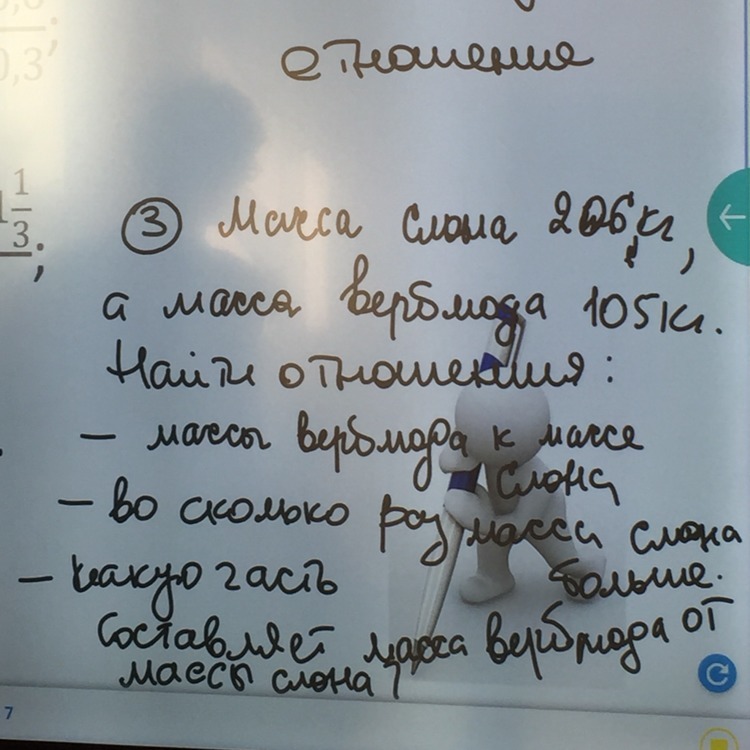 0,3;
отношение
1 1/3;
③ Масса слона 206 кг,
а масса верблюда 105 кг.
Найти отношения:
– массы верблюда к массе
слона
– во сколько раз масса слона
больше.
– какую часть
составляет масса верблюда от
массы слона?
7